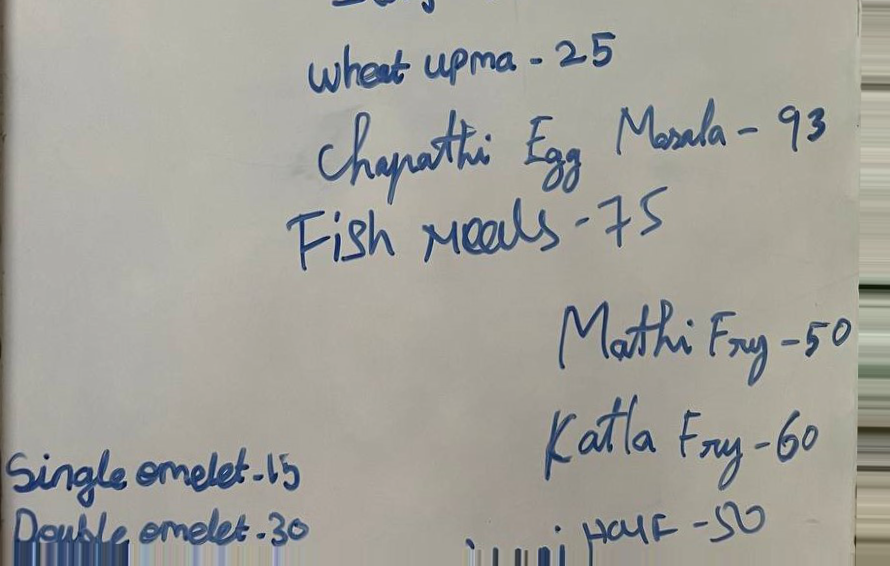 wheat upma - 25
Chapathi Egg Masala - 93
Fish meals - 75
Mathi Fry - 50
Katla Fry - 60
Single omelet - 15
Double omelet - 30
Half - 50